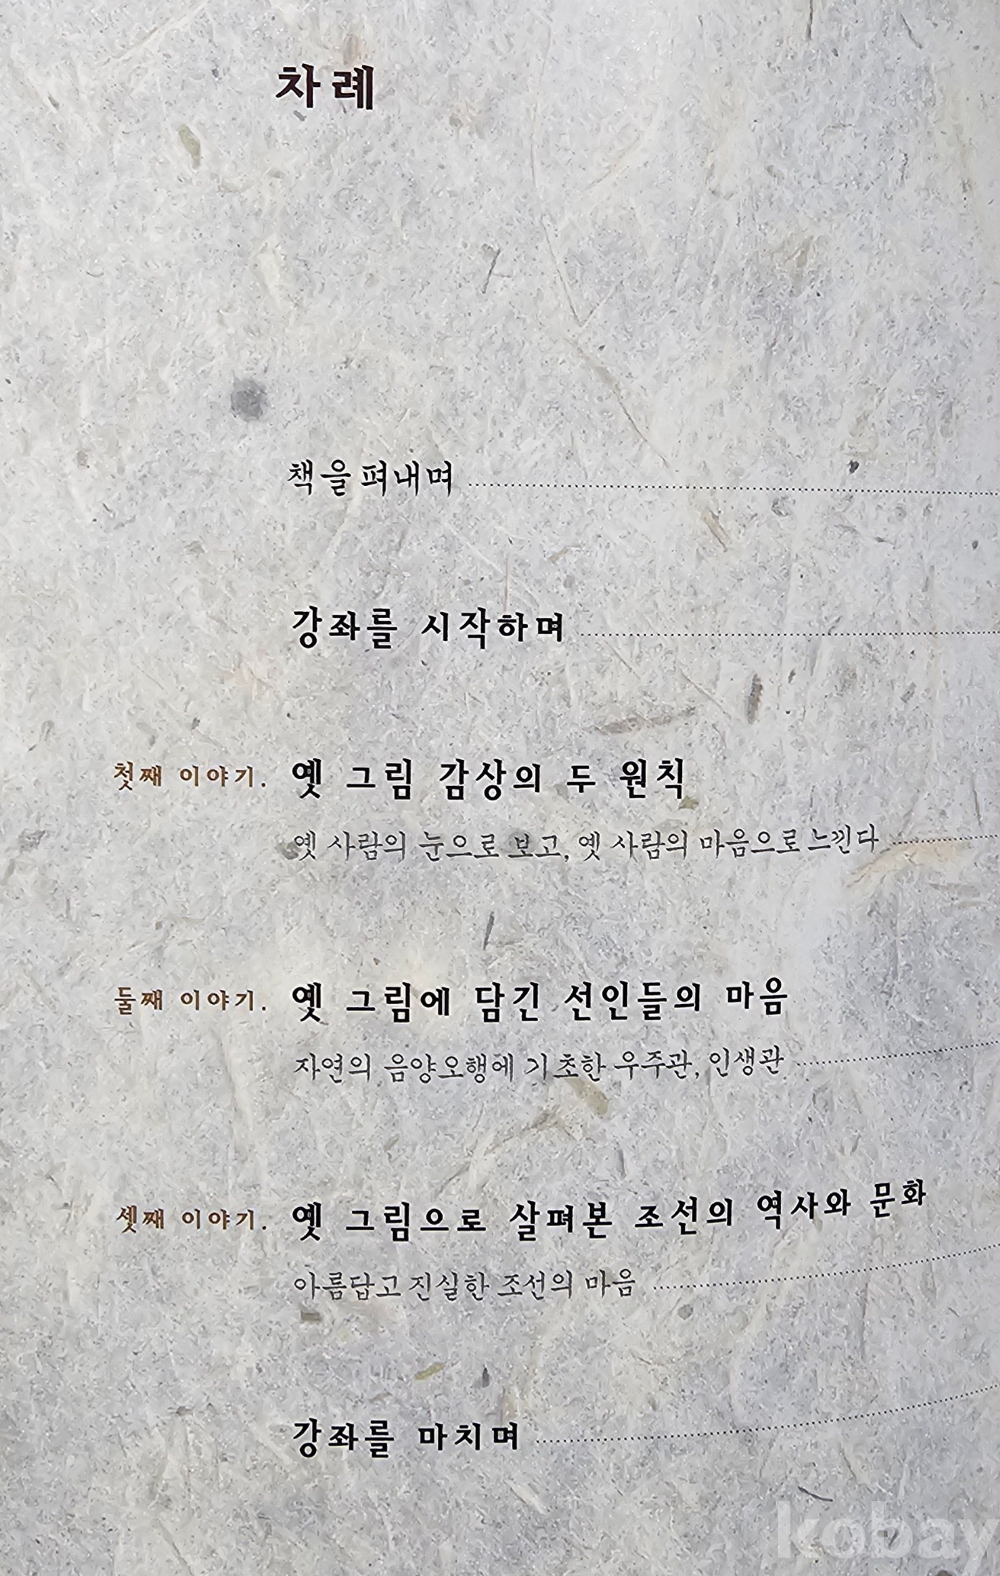 차례
책을 펴내며
강좌를 시작하며
첫째 이야기. 옛 그림 감상의 두 원칙
옛 사람의 눈으로 보고, 옛 사람의 마음으로 느낀다
둘째 이야기. 옛 그림에 담긴 선인들의 마음
자연의 음양오행에 기초한 우주관, 인생관
셋째 이야기. 옛 그림으로 살펴본 조선의 역사와 문화
아름답고 진실한 조선의 마음
강좌를 마치며
kobay